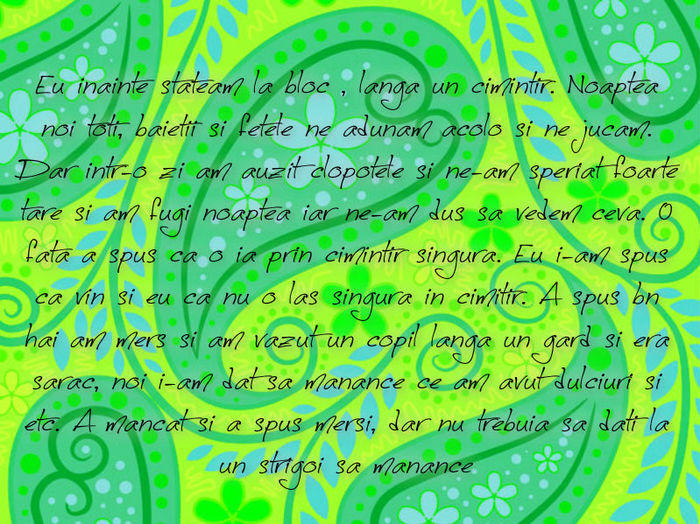 Eu inainte stateam la bloc , langa un cimintir. Noaptea
noi toti, baietii si fetele ne adunam acolo si ne jucam.
Dar intr-o zi am auzit clopotele si ne-am speriat foarte
tare si am fugi noaptea iar ne-am dus sa vedem ceva. O
fata a spus ca o ia prin cimintir singura. Eu i-am spus
ca vin si eu ca nu o las singura in cimitir. A spus bn
hai am mers si am vazut un copil langa un gard si era
sarac, noi i-am dat sa manance ce am avut dulciuri si
etc. A mancat si a spus mersi, dar nu trebuia sa dati la
un strigoi sa manance